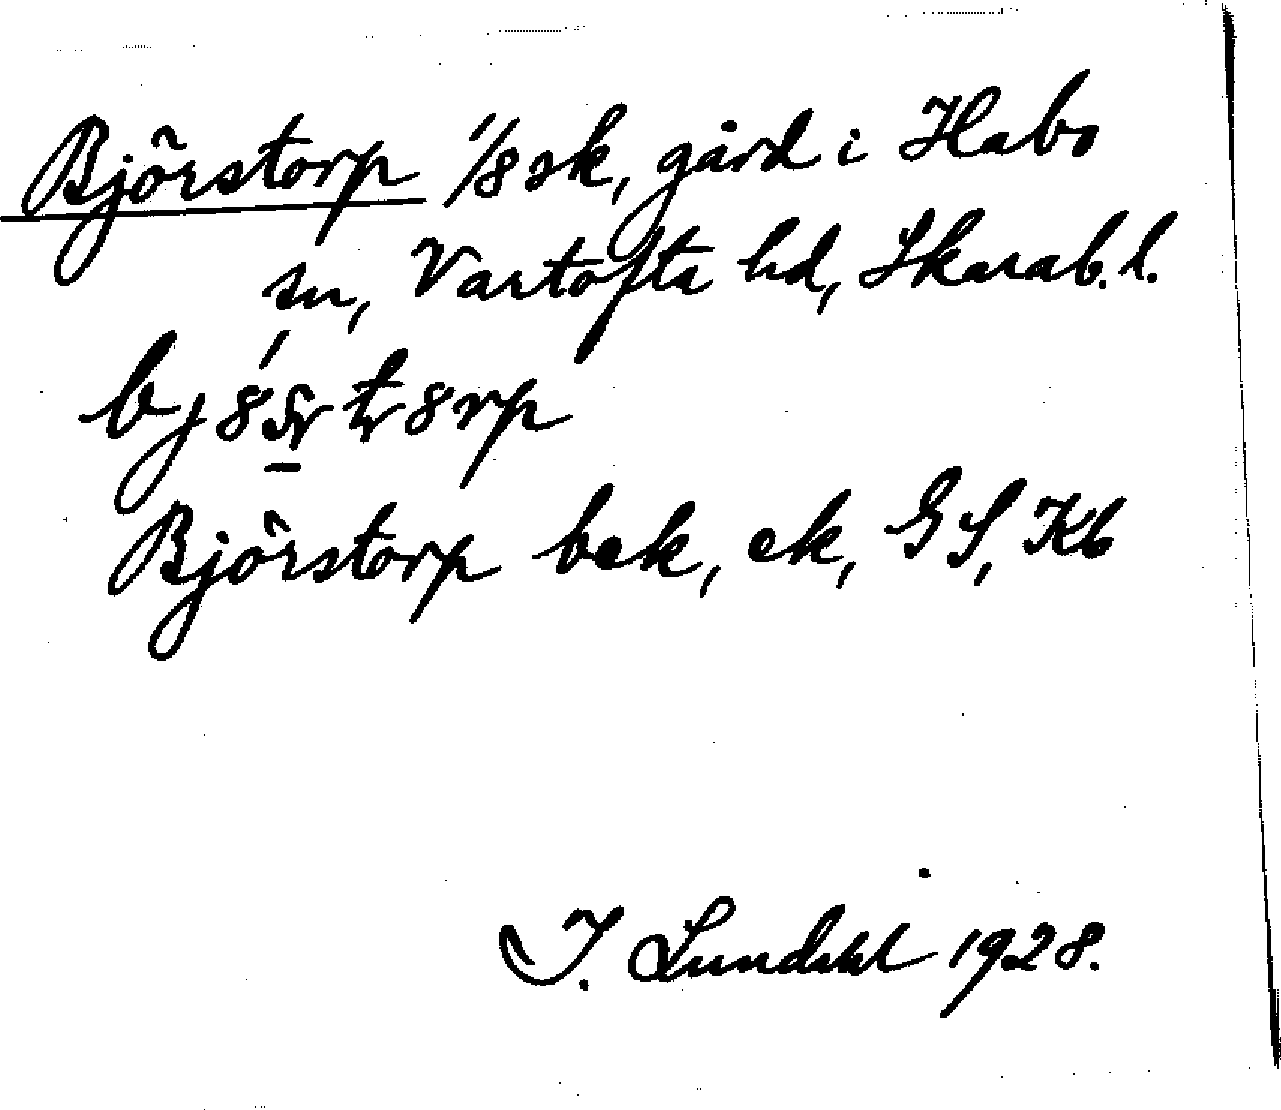 Björstorp 1/8 sk, gård i Habo
sn, Vartofta hd, Skarab. l.
Björstorp bek, ek, GS, Kb
I. Lundahl 1928.